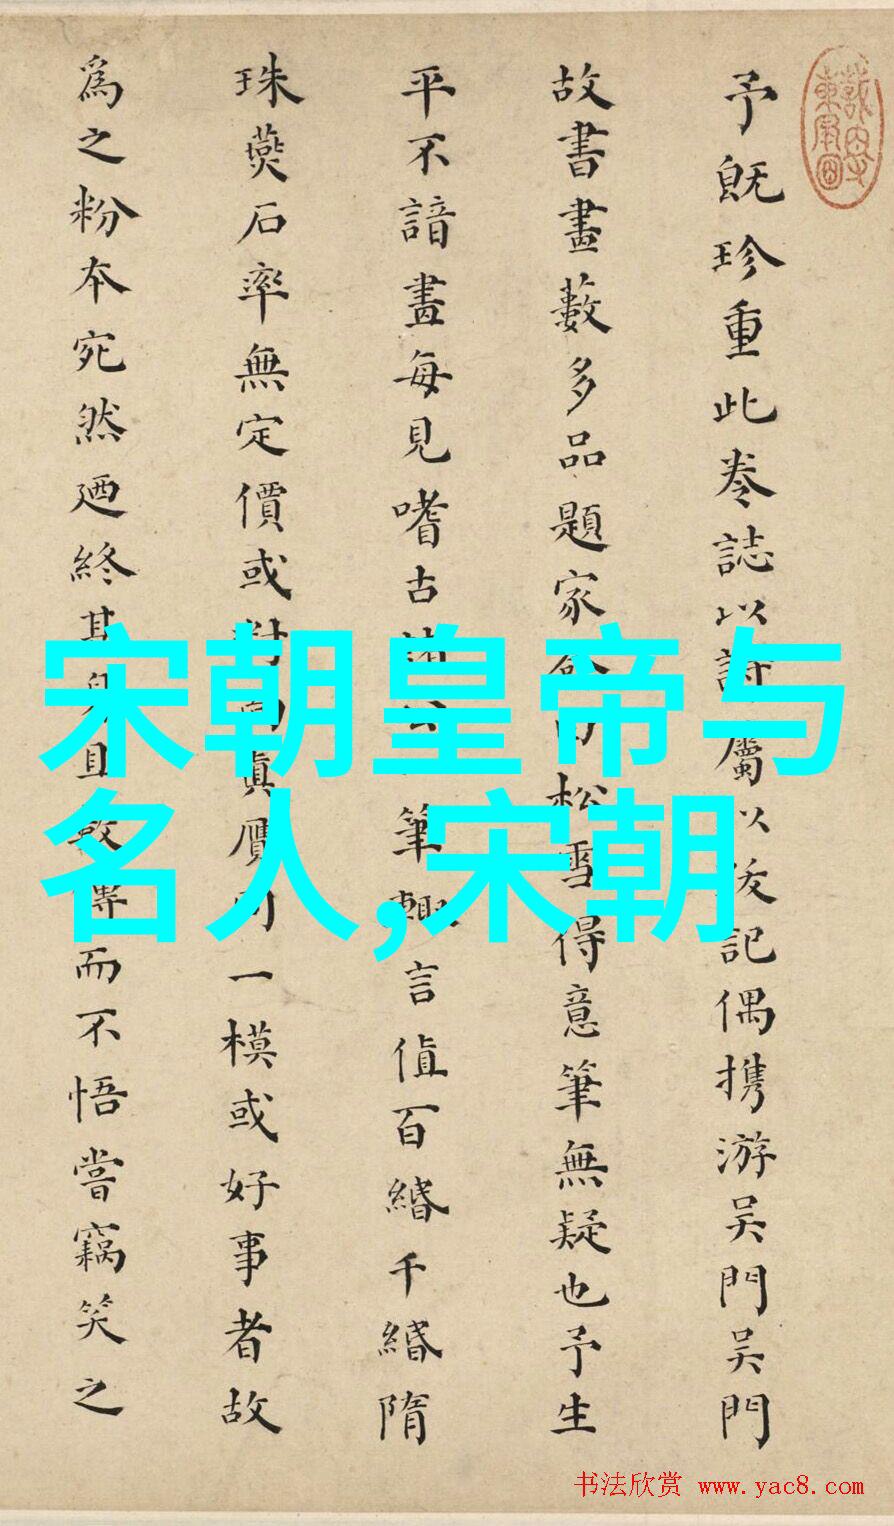 予既珍重此卷誌以詩屬以記偶携游吳門吳門
故書畫藪多品題家松雪得意筆無疑也予生
平不諳畫每見嗜古筆輙言值百緡千緡隋
珠燕石率無定價或真贋一模或好事者故
為之粉本宛然廼終其身且而不悟嘗竊笑之
宋朝皇帝与
名人,宋朝
书法欣赏 www.yac8.com